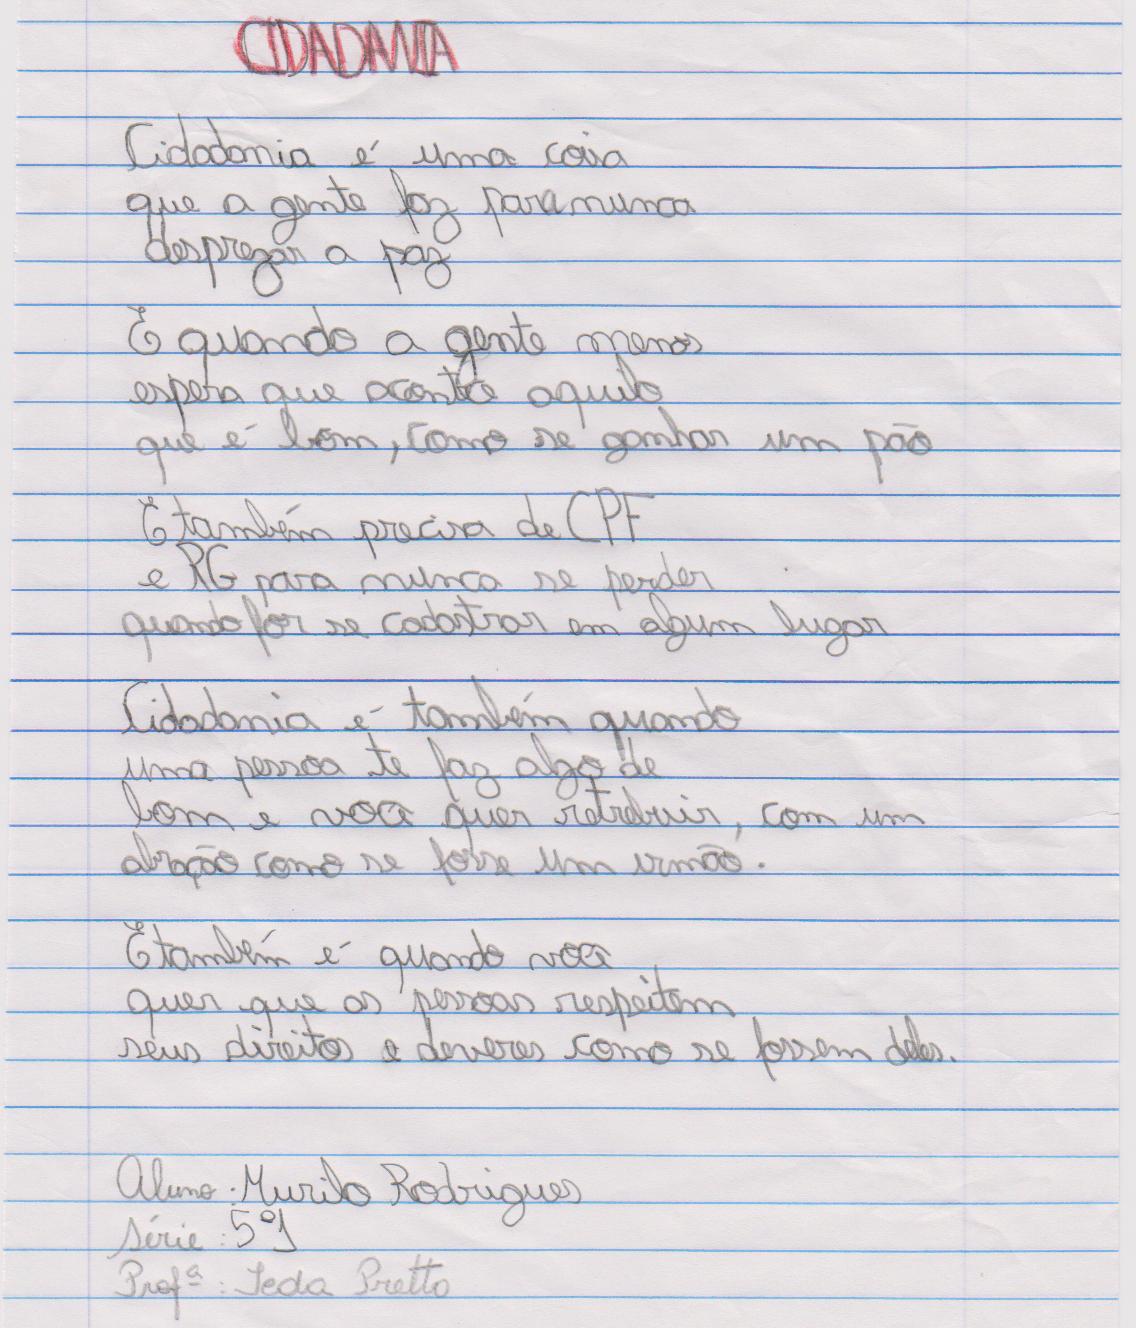 CIDADANIA
Cidadania é uma coisa
que a gente faz para nunca
desprezar a paz
E quando a gente menos
espera que acontece aquilo
que é bom, como se ganhar um pão
E também precisa de CPF
e RG para nunca se perder
quando for se cadastrar em algum lugar
Cidadania é também quando
uma pessoa te faz algo de
bom e você quer retribuir, com um
abração como se fosse um irmão.
E também é quando você
quer que as pessoas respeitem
seus direitos e deveres como se fossem deles.
Aluno: Murilo Rodrigues
Série: 5º1
Profª: Ieda Pretto